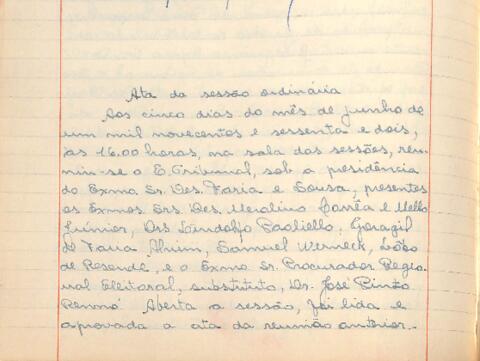 Ata da sessão ordinária
Aos cinco dias do mês de junho de
um mil novecentos e sessenta e dois,
às 16.00 horas, na sala das sessões, reu-
niu-se o E. Tribunal, sob a presidência
do Exmo Sr. Des. Faria e Sousa, presentes
os Exmos. Srs. Des. Merolino Corrêa e Mello
Júnior, Drs Lindolfo Paoliello, Geragil
de Faria Alvim, Samuel Werneck, Lôbo
de Resende, e o Exmo Sr. Procurador Regio-
nal Eleitoral, substituto, Dr. José Pinto
Rennó. Aberta a sessão, foi lida e
aprovada a ata da reunião anterior.-